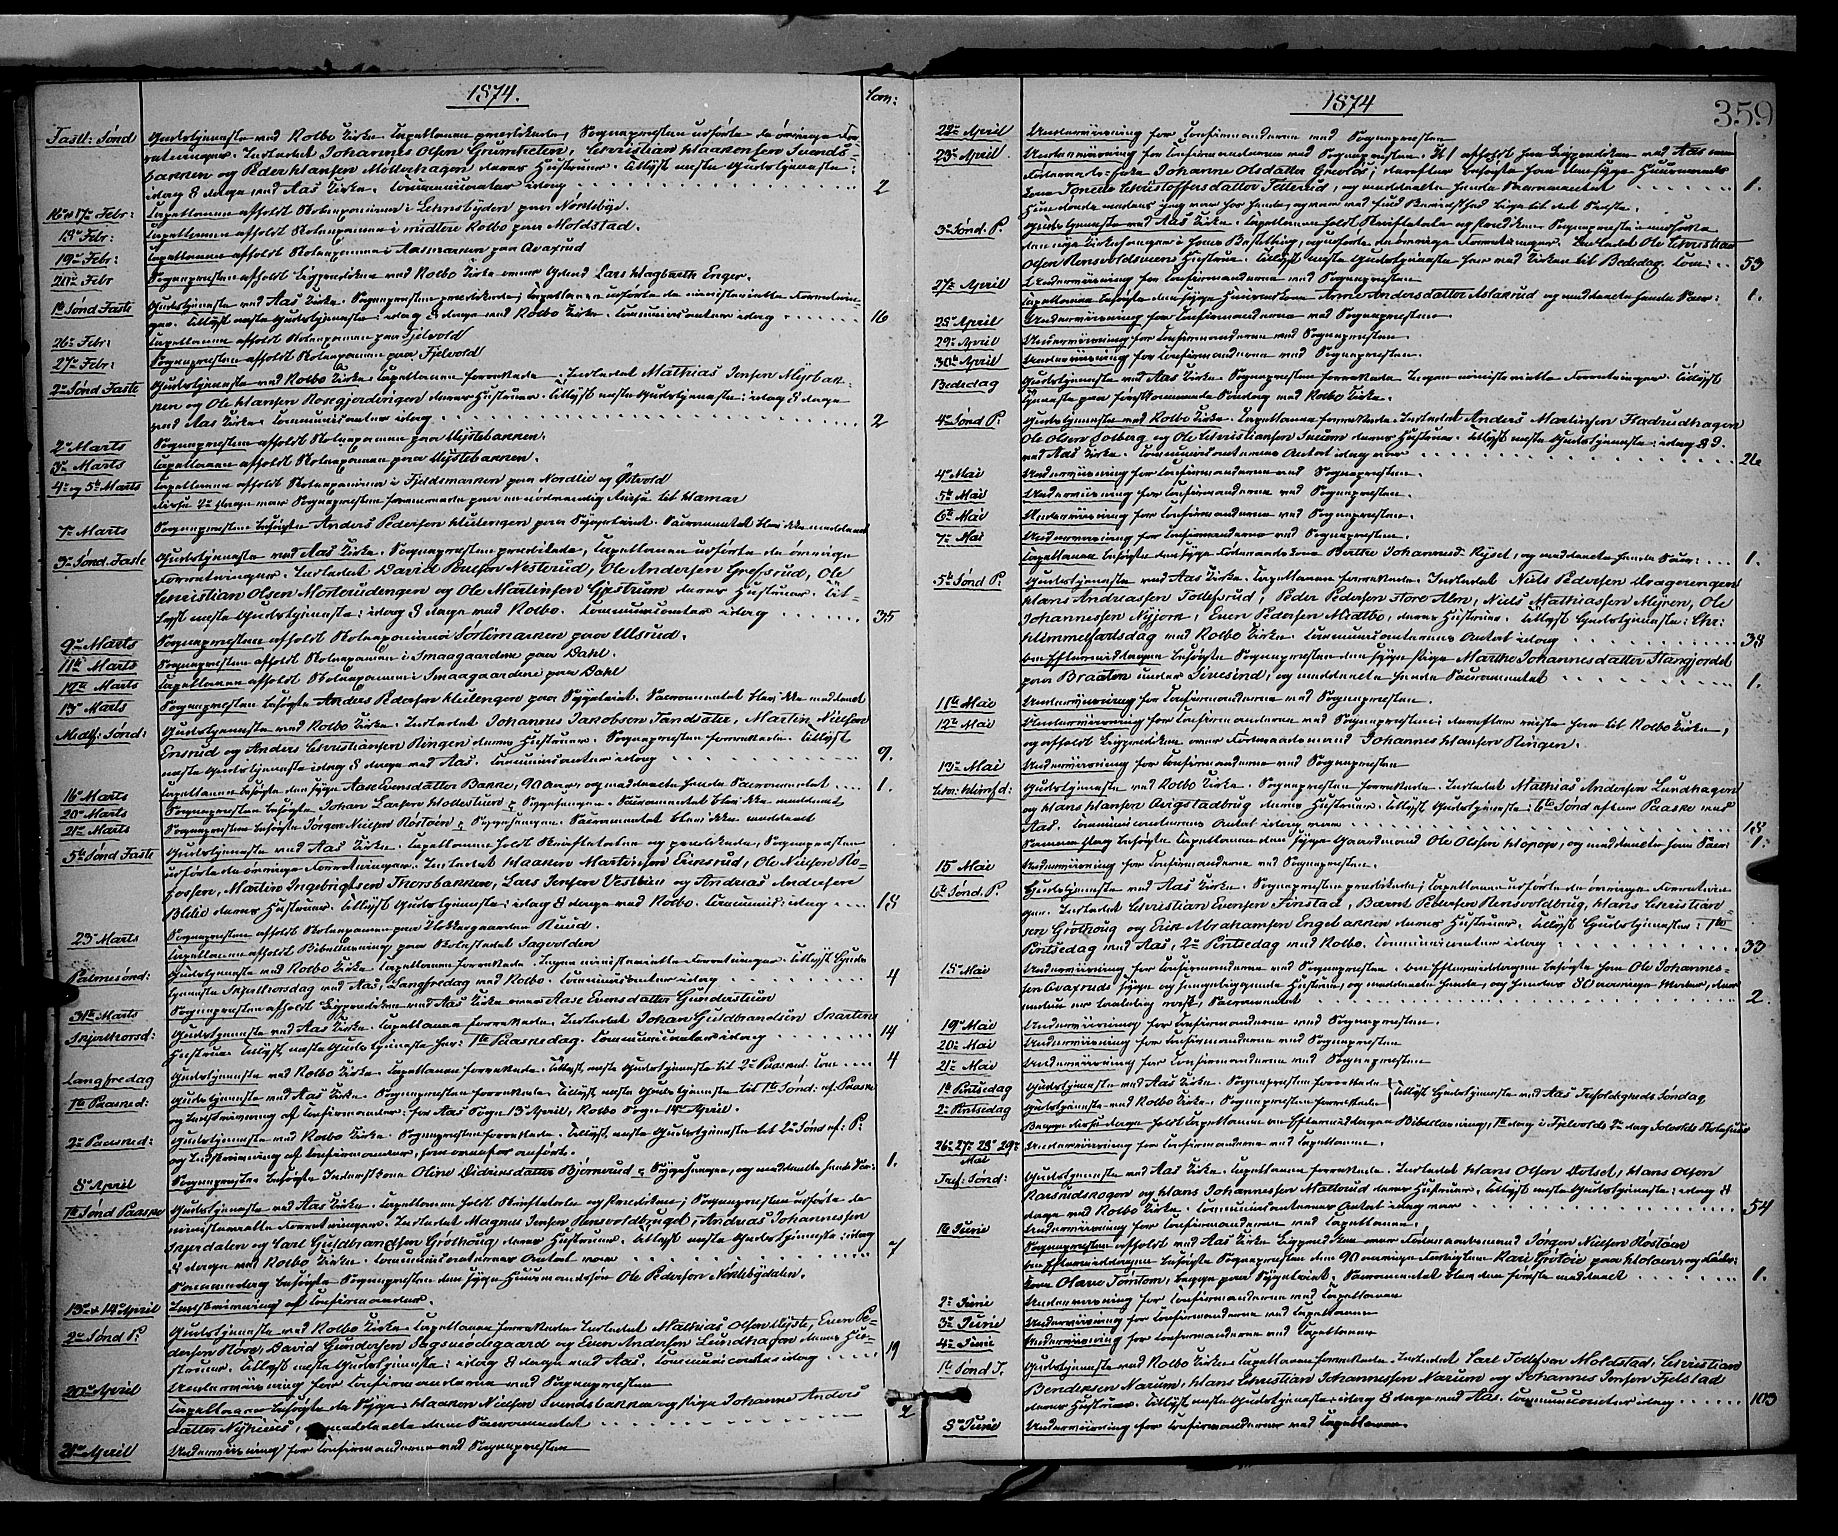 1874.
Com:
Fastl: Sønd Gudstjeneste ved Kolbo Kirke. Capellanen prædikede, Sognepresten udførte de øvrige For-
retninger. Indledet Johannes Olsen Grumheten, Christian Haakensen Svends-
bakken og Peder Hansen Möllerhagen deres Hustruer. Tillyst næste Gudstjeneste:
idag 8 dage ved Aas Kirke. Communicanter idag 2
16 & 17 Febr: Capellanen afholdt Skoleexamina i Lehnsbygden paa Nordeby.
18 Febr: Capellanen afholdt Skoleexamen i midtre Kolbo paa Moldstad.
19 Febr: Capellanen afholdt Skoleexamen i Aasmarken paa Qvaxrud
20 Febr Sognepresten afholdt Ligprædiken ved Kolbo Kirke over Lars Hagbarth Enger.
1te Sønd Faste Gudstjeneste ved Aas Kirke. Sognepresten prædikede, Capellanen udførte de ministerielle Forretnin-
ger. Tillyst næste Gudstjeneste: idag 8 dage ved Kolbo Kirke. Communicanter idag 16
26 Febr: Capellanen afholdt Skoleexamen paa Fjelvold
27 Febr: Sognepresten afholdt Skoleexamen paa Fjelvold
2 Sønd Faste Gudstjeneste ved Kolbo Kirke. Capellanen forrettede. Indledet Mathias Jensen Myrbak-
ken og Ole Hansen Rosegjerdingen deres Hustruer. Tillyst næste Gudstjeneste: idag 8 dage
ved Aas Kirke. Communicanter idag 2
2 Marts Sognepresten afholdt Skoleexamen paa
3 Marts Capellanen afholdt Skoleexamen paa
4 og 5te Marts Capellanen afholdt Skoleexamina i Fjeldsmarken paa Nordlie og Østvold
disse 2 dage var Sognepresten fraværende paa en nødvendig Reise til Hamar
7 Marts Sognepresten besøgte Anders Pedersen paa Sygeleiet. Sacramentet blev ikke meddeelt
3 Sønd. Faste Gudstjeneste ved Aas Kirke. Sognepresten prædikede, Capellanen udførte de øvrige
Forretninger. Indledet David Nesterud, Ole Andersen Grefsrud, Ole
Christian Olsen Mosterudengen og Ole Martinsen Gjestrum deres Hustruer. Til-
lyst næste Gudstjeneste: idag 8 dage ved Kolbo. Communicanter idag 35
9 Marts Sognepresten afholdt Skoleexamen i Sørlimarken paa Ulsrud.
11te Marts Sognepresten afholdt Skoleexamen i Smaagaardene paa Dahl.
12te Marts Capellanen afholdt Skoleexamen i Smaagaardene paa Dahl
13 Marts Sognepresten besøgte Anders Pedersen paa Sygeleiet. Sacramentet blev ikke meddeelt
Midtf: Sønd: Gudstjeneste ved Kolbo Kirke. Indledet Johannes Jakobsen Tandsæter, Martin Nielsen
Ensrud og Anders Christiansen Ringen deres Hustruer. Sognepresten forrettede. Tillyst
næste Gudstjeneste idag 8 dage ved Aas. Communicanter idag 9.
16 Marts Capellanen besøgte den syge Aase Evensdatter Bakke, 90 aar, og meddeelte hende Sacramentet 1.
20 Marts Sognepresten besøgte Johan Larsen paa Sygesengen. Sacramentet blev ikke meddeelt
21 Marts Sognepresten besøgte Jørgen Nielsen Røstøen paa Sygesengen. Sacramentet blev ikke meddeelt
5te Sønd Faste Gudstjeneste ved Aas Kirke. Capellanen holdt Skriftetalen og prædikede, Sognepresten
udførte de øvrige Forretninger. Indledet Haaken Martinsen Evensrud, Ole Nielsen Ro-
fossen, Martin Ingebrigtsen Thorsbakken, Lars Jensen Vestbien og Andreas Andersen
Blilie deres Hustruer. Tillyst Gudstjeneste: idag 8 dage ved Kolbo. Communic: idag 18
23 Marts Sognepresten afholdt Skoleexamen paa Ruud.
Capellanen afholdt Bibellæsning paa Skolestedet Sagvolden
Palmesønd: Gudstjeneste ved Kolbo Kirke Capellanen forrettede. Ingen ministerielle Forretninger. Tillyst Guds-
tjeneste Skjærthorsdag ved Aas, Langfredag ved Kolbo. Communicanter idag 4
31te Marts Sognepresten afholdt Ligprædiken ved Aas Kirke over Aase Evensdatter Gunderstuen
Skjærthorsd: Gudstjeneste ved Aas Kirke. Capellanen forrettede. Indledet Johan Guldbrandsen Svartens
Hustrue. Tillyst næste Gudstjeneste her: 1te Paaskedag. Communicanter idag 14
Langfredag Gudstjeneste ved Kolbo Kirke. Capellanen forrettede. Tillyst næste Gudstjeneste til 2 Paasked. Com 4
1te Paasked: Gudstjeneste ved Aas Kirke. Sognepresten forrettede. Tillyst næste Gudstjeneste til 1te Sønd: ef. Paaske
og Indskrivning af Confirmander: for Aas Sogn 13 April, Kolbo Sogn 14 April.
2 Paasked: Gudstjeneste ved Kolbo Kirke. Sognepresten forrettede. Tillyst næste Gudstjeneste til 2 Sønd ef. P:
og Indskrivning af Confirmander, som ovenfor anført.
8 April Sognepresten besøgte Inderstkone Oline Didriksdatter Bjørnerud paa Sygesengen, og meddeelte hende Sac: 1.
1te Sønd Paaske Gudstjeneste ved Aas Kirke. Capellanen holdt Skriftetale og Prædiken; Sognepresten udførte de
ministerielle Forretninger. Indledet Magnus Jensen Rensvoldbruget, Andreas Johannessen
Skjerdalen og Carl Guldbrandsen Grøthoug deres Hustruer. Tillyst næste Gudstjeneste: idag
8 dage ved Kolbo Kirke. Communicanternes Antal var 7
Samme dag besøgte Sognepresten den syge Huusmandssøn Ole Pedersen Nordebydalen.
13 & 14 April Indskrivning af Confirmander.
2 Sønd P: Gudstjeneste ved Kolbo Kirke Capellanen forrettede. Indledet Mathias Olsen, Even Pe-
dersen Hove, David Gundersen Sagsmødegaard og Even Andersen Lundhagen deres Hu-
struer. Tillyst næste Gudstjeneste: idag 8 dage ved Aas. Communicanter idag 19
20 April Underviisning for Confirmanderne ved Sognepresten
Capellanen besøgte de Syge Haaken Nielsen Svendsbakken og Pige Johanne Anders
datter, og meddeelte dem Sacramentet 2
21 April Underviisning for Confirmanderne ved Sognepresten
1874
359
22 April Underviisning for Confirmanderne ved Sognepresten
23 April Underviisning for Confirmanderne ved Sognepresten. Kl 1 afholdt han Ligprædiken ved Aas over
Johanne Olsdatter; derefter besøgte han den syge Huusmands
kone Tonette Christoffersdatter Tellerud, og meddeelte hende Sacramentet 1.
3 Sønd. P. Gudstjeneste ved Aas Kirke. Capellanen holdt Skriftetale og Prædiken Sognepresten
den nye Kirkesanger i hans Bestilling, og udførte de øvrige Forretninger. Indledet Ole Christian
Olsen Rensvoldsveens Hustrue. Tillyst næste Gudstjeneste her ved Kirken til Bededag. Com: 53
27 April Underviisning for Confirmanderne ved Sognepresten
Capellanen besøgte den syge Anne Andersdatter og meddeelte hende Sacr: 1.
28 April Underviisning for Confirmanderne ved Sognepresten
29 April Underviisning for Confirmanderne ved Sognepresten.
30te April Underviisning for Confirmanderne ved Sognepresten.
Bededag Gudstjeneste ved Aas Kirke. Sognepresten forrettede. Ingen ministerielle Forretninger. Tillyst
Tjeneste paa førstkommende Søndag ved Kolbo Kirke.
4 Sønd P. Gudstjeneste ved Kolbo Kirke. Capellanen forrettede. Indledet Anders Martinsen Hadrudhagen
Ole Olsen Solberg og Ole Christiansen deres Hustruer. Tillyst næste Gudstjeneste: idag 8 D.
ved Aas Kirke. Communicanternes Antal idag var 26
4 Mai Underviisning for Confirmanderne ved Sognepresten.
5te Mai Underviisning for Confirmanderne ved Sognepresten.
6te Mai Underviisning for Confirmanderne ved Sognepresten.
7 Mai Underviisning for Confirmanderne ved Sognepresten.
Capellanen besøgte den syge Føderaadskone Berthe Johannesd: Kjøst, og meddeelte hende Sacr: 1.
5te Sønd P: Gudstjeneste ved Aas Kirke. Capellanen forrettede. Indledet Niels Pedersen
Hans Andreassen Tollefsrud, Peder Pedersen Store Alm, Niels Mathiassen Myren, Ole
Johannessen Nyjorn, Even Pedersen Midtbo, deres Hustruer. Tillyst Gudstjeneste: Chr:
Himmelfartsdag ved Kolbo Kirke. Communicanternes Antal idag 38
Om Eftermiddagen besøgte Sognepresten den syge Pige Marthe Johannesdatter Stangjordet
paa Braaten under, og meddeelte hende Sacramentet 1.
11te Mai Underviisning for Confirmanderne ved Sognepresten.
12te Mai Underviisning for Confirmanderne ved Sognepresten; derefter reiste han til Kolbo Kirke,
og afholdt Ligprædiken over Føderaadsmand Johannes Hansen Ringen.
13te Mai Underviisning for Confirmanderne ved Sognepresten
Chr: Himfd: Gudstjeneste ved Kolbo Kirke. Sognepresten forrettede. Indledet Mathias Andersen Lundhagen
og Hans Hansen Qvigstadbrug deres Hustruer. Tillyst Gudstjeneste: 6te Sønd efter Paaske ved
Aas. Communicanternes Antal idag var 18
Samme dag besøgte Capellanen den syge Gaardmand Ole Olsen, og meddeelte ham Sacr: 1.
15 Mai Underviisning for Confirmanderne ved Sognepresten.
6te Sønd. P. Gudstjeneste ved Aas Kirke. Sognepresten prædikede; Capellanen udførte de øvrige Forretnin-
ger. Indledet Christian Evensen Finstad, Bernt Pedersen Rensvoldbrug, Hans Christian-
sen Grøthoug og Even Abrahamsen Engebakken deres Hustruer. Tillyst Gudstjenester: 1te
Pintsedag ved Aas, 2 Pintsedag ved Kolbo. Communicanter idag 33
18 Mai Underviisning for Confirmanderne ved Sognepresten. Om Eftermiddagen besøgte han Ole Johannes-
sen Qvaxruds syge og sengeliggende Hustrue, og meddeelte hende, og hendes 80 aarige Moder, der
Sacramentet 2.
19 Mai Underviisning for Confirmanderne ved Sognepresten.
20 Mai Underviisning for Confirmanderne ved Sognepresten
21 Mai Underviisning for Confirmanderne ved Sognepresten
1te Pintsedag Gudstjeneste ved Aas Kirke. Sognepresten forrettede } Tillyst Gudstjeneste ved Aas Trefoldigheds Søndag
2 Pintsedag Gudstjeneste ved Kolbo Kirke. Sognepresten forrettede
Begge disse dage holdt Capellanen om Eftermiddagen Bibellæsning, 1te dag i Fjelvolds 2 dag Skolehuus
26 27 28 29 Mai Underviisning for Confirmanderne ved Capellanen.
Tref: Sønd: Gudstjeneste ved Aas Kirke. Capellanen forrettede. Indledet Hans Olsen Dolset, Hans Olsen
og Hans Johannessen Mattorud deres Hustruer. Tillyst næste Gudstjeneste: idag 8
dage ved Kolbo Kirke. Communicanternes Antal idag var 54
1te Junii Underviisning for Confirmanderne ved Capellanen.
Sognepresten afholdt ved Aas Kirke Ligprædiken over Føderaadsmand Jørgen Nielsen Røstøen
Om Eftermiddagen besøgte Sognepresten den 90 aarige Kari Grøtøie
kone Olave Tømtom, begge paa Sygeleiet. Sacramentet blev den første meddeelt 1.
2 Junii Underviisning for Confirmanderne ved Capellanen
3 Junii Underviisning for Confirmanderne ved Capellanen
4 Junii Underviisning for Confirmanderne ved Capellanen
1te Sønd T. Gudstjeneste ved Kolbo Kirke. Capellanen forrettede. Indledet Carl Tollefsen Moldstad, Christian
Bendiksen Narum, Hans Christian Johannessen Narum og Johannes Jensen Fjelstad
deres Hustruer. Tillyst næste Gudstjeneste: idag 8 dage ved Aas. Communicanter idag 103
8 Junii Underviisning for Confirmanderne ved Capellanen.